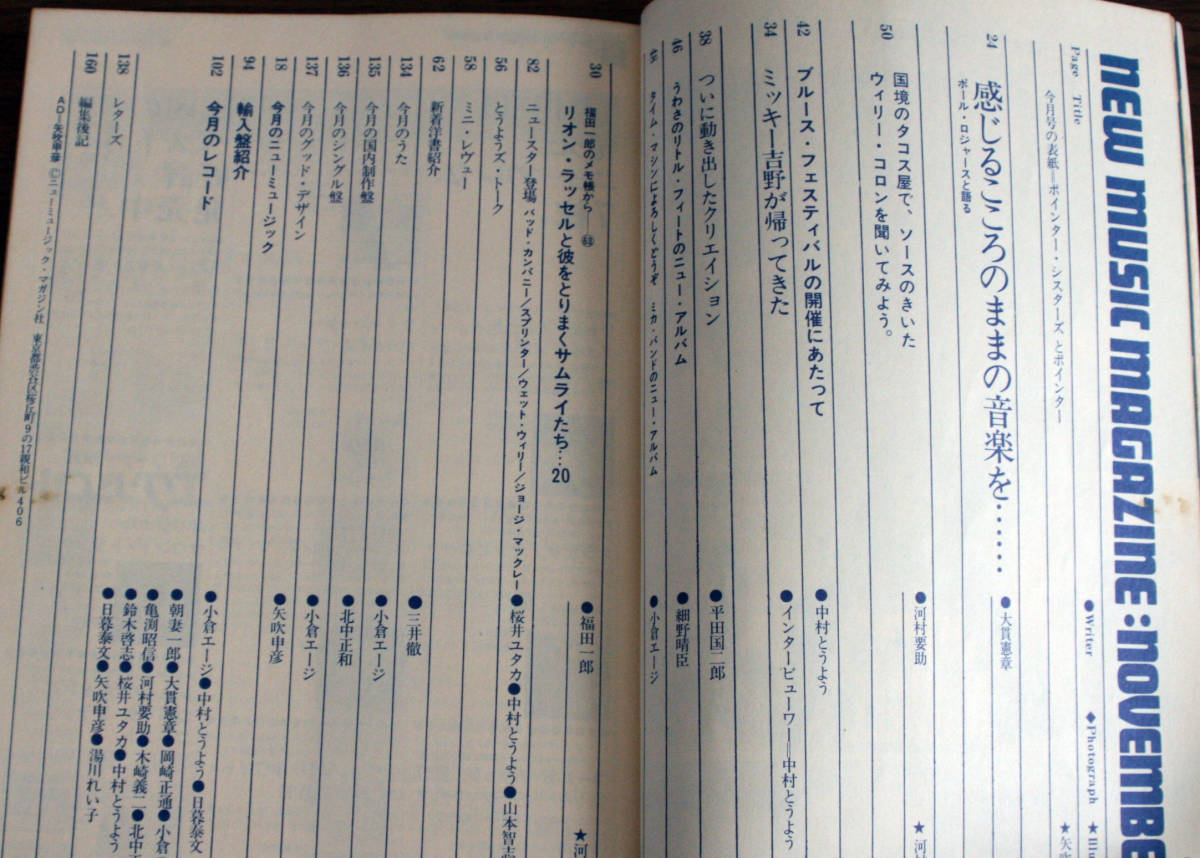 NEW MUSIC MAGAZINE : NOVEMBE
Page Title ●Writer ◆Photograph ★Illu
今月号の表紙＝ポインター・シスターズとポインター ★矢吹
24 感じるこころのままの音楽を…… ●大貫憲章
ポール・ロジャースと語る
50 国境のタコス屋で、ソースのきいた
ウィリー・コロンを聞いてみよう。 ●河村要助 ★河
42 ブルース・フェスティバルの開催にあたって ●中村とうよう
34 ミッキー吉野が帰ってきた ●インタービューワー＝中村とうよう
38 ついに動き出したクリエイション ●平田国二郎
46 うわさのリトル・フィートのニュー・アルバム ●細野晴臣
タイム・マシンによろしくどうぞ ミカ・バンドのニュー・アルバム ●小倉エージ
30 福田一郎のメモ帳から――63
リオン・ラッセルと彼をとりまくサムライたち?‥20 ●福田一郎 ★河
82 ニュースター登場 バッド・カンパニー/スプリンター/ウェット・ウィリー/ジョージ・マックレー ●桜井ユタカ●中村とうよう●山本智志
56 とうようズ・トーク
58 ミニ・レヴュー
62 新着洋書紹介 ●三井徹
134 今月のうた
135 今月の国内制作盤 ●小倉エージ
136 今月のシングル盤 ●北中正和
137 今月のグッド・デザイン ●小倉エージ
18 今月のニューミュージック ●矢吹申彦
94 輸入盤紹介
102 今月のレコード ●小倉エージ●中村とうよう●日暮泰文
●朝妻一郎●大貫憲章●岡崎正通●小倉
●亀渕昭信●河村要助●木崎義二●北中正
●鈴木啓志●桜井ユタカ●中村とうよう
●日暮泰文●矢吹申彦●湯川れい子
138 レターズ
160 編集後記
AD＝矢吹申彦 ©ニューミュージック・マガジン社 東京都渋谷区桜丘町9の17親和ビル406